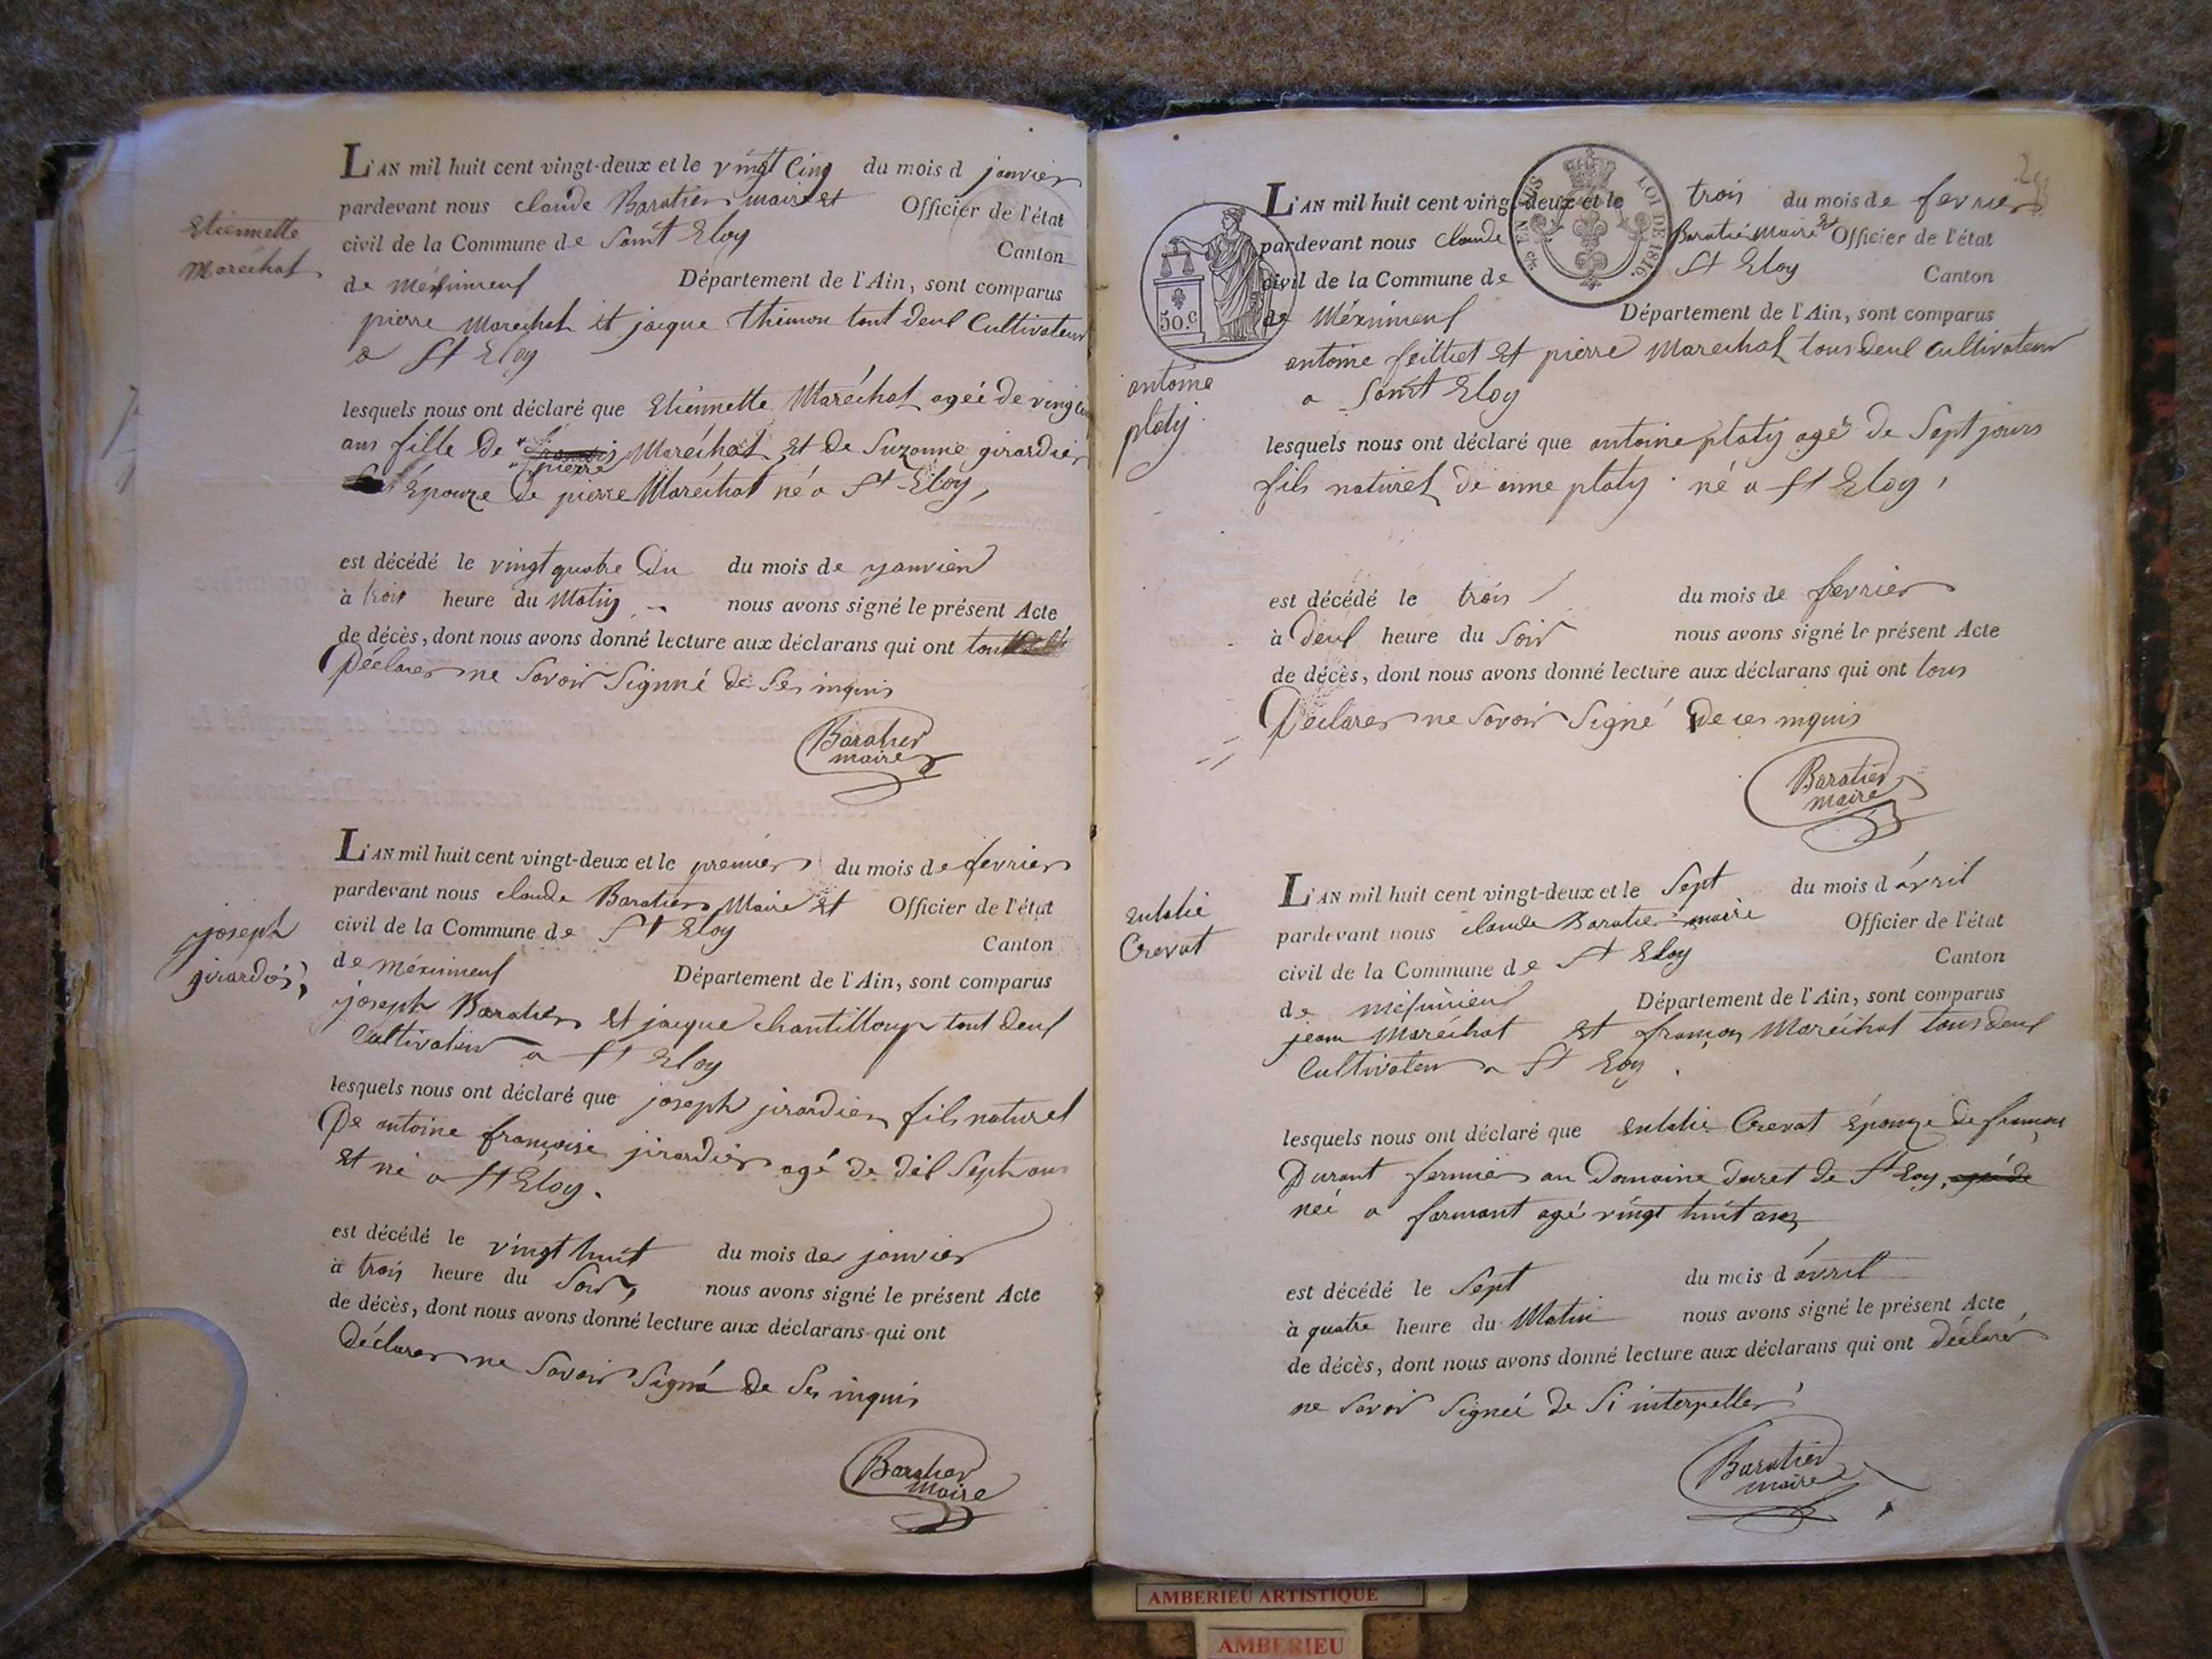 Etiennette
Maréchal
L'AN mil huit cent vingt-deux et le vingt Cinq du mois d janvier
pardevant nous claude Baratier maire et Officier de l'état
civil de la Commune de Saint Eloy Canton
de Méximieux Département de l'Ain, sont comparus
pierre Marechal et jacque thimon tout deux Cultivateur
a St Eloy
lesquels nous ont déclaré que Etiennette Maréchal ageé de vingt
ans fille de pierre Maréchal et de Suzanne girardier
Épouze de pierre Maréchal né a St Eloy,
est décédé le vingt quatre Du du mois de janvier
à trois heure du Matin nous avons signé le présent Acte
de décès, dont nous avons donné lecture aux déclarans qui ont tout
Déclarer ne Savoir Signné de Ses inquis
Baratier
maire
joseph
girardié
L'AN mil huit cent vingt-deux et le premier du mois de fevrier
pardevant nous claude Baratier Maire et Officier de l'état
civil de la Commune de St Eloy Canton
de Méximieux Département de l'Ain, sont comparus
joseph Baratier et jacque chantilloup tout deux
Cultivateur a St Eloy
lesquels nous ont déclaré que joseph jirardier fils naturel
De antoine françoise jirardier agé de dix Sept ans
et né a St Eloy.
est décédé le vingt huit du mois de janvier
à trois heure du Soir, nous avons signé le présent Acte
de décès, dont nous avons donné lecture aux déclarans qui ont
Déclarer ne Savoir Signé de Ses inquis
Baratier
maire
LOI DE 1816.
50.c
antoine
platy
L'AN mil huit cent vingt-deux et le trois du mois de fevrier
pardevant nous Claude Baratié Maire et Officier de l'état
civil de la Commune de St Eloy Canton
de Méximieux Département de l'Ain, sont comparus
antoine feilliet et pierre Marechal tous deux Cultivateur
a Saint Eloy
lesquels nous ont déclaré que antoine platy agé de Sept jours
fils naturel de anne platy né a St Eloy,
est décédé le trois du mois de fevrier
à deux heure du Soir nous avons signé le présent Acte
de décès, dont nous avons donné lecture aux déclarans qui ont tous
Déclarer ne Savoir Signé De ces inquis
Baratier
maire
Eulalie
Crevat
L'AN mil huit cent vingt-deux et le Sept du mois d'avril
pardevant nous claude Baratier maire Officier de l'état
civil de la Commune de St Eloy Canton
de Département de l'Ain, sont comparus
jean Maréchal et françois Maréchal tous deux
Cultivateur a St Eloy.
lesquels nous ont déclaré que Eulalie Crevat Épouze de françois
Durant fermier au Domaine Duret de St Eloy, agé de
neé a formant agé vingt huit ans
est décédé le Sept du mois d'avril
à quatre heure du Matin nous avons signé le présent Acte
de décès, dont nous avons donné lecture aux déclarans qui ont Déclaré
ne Savoir Signeé de Si interpeller
Baratier
maire
AMBERIEU ARTISTIQUE
AMBERIEU